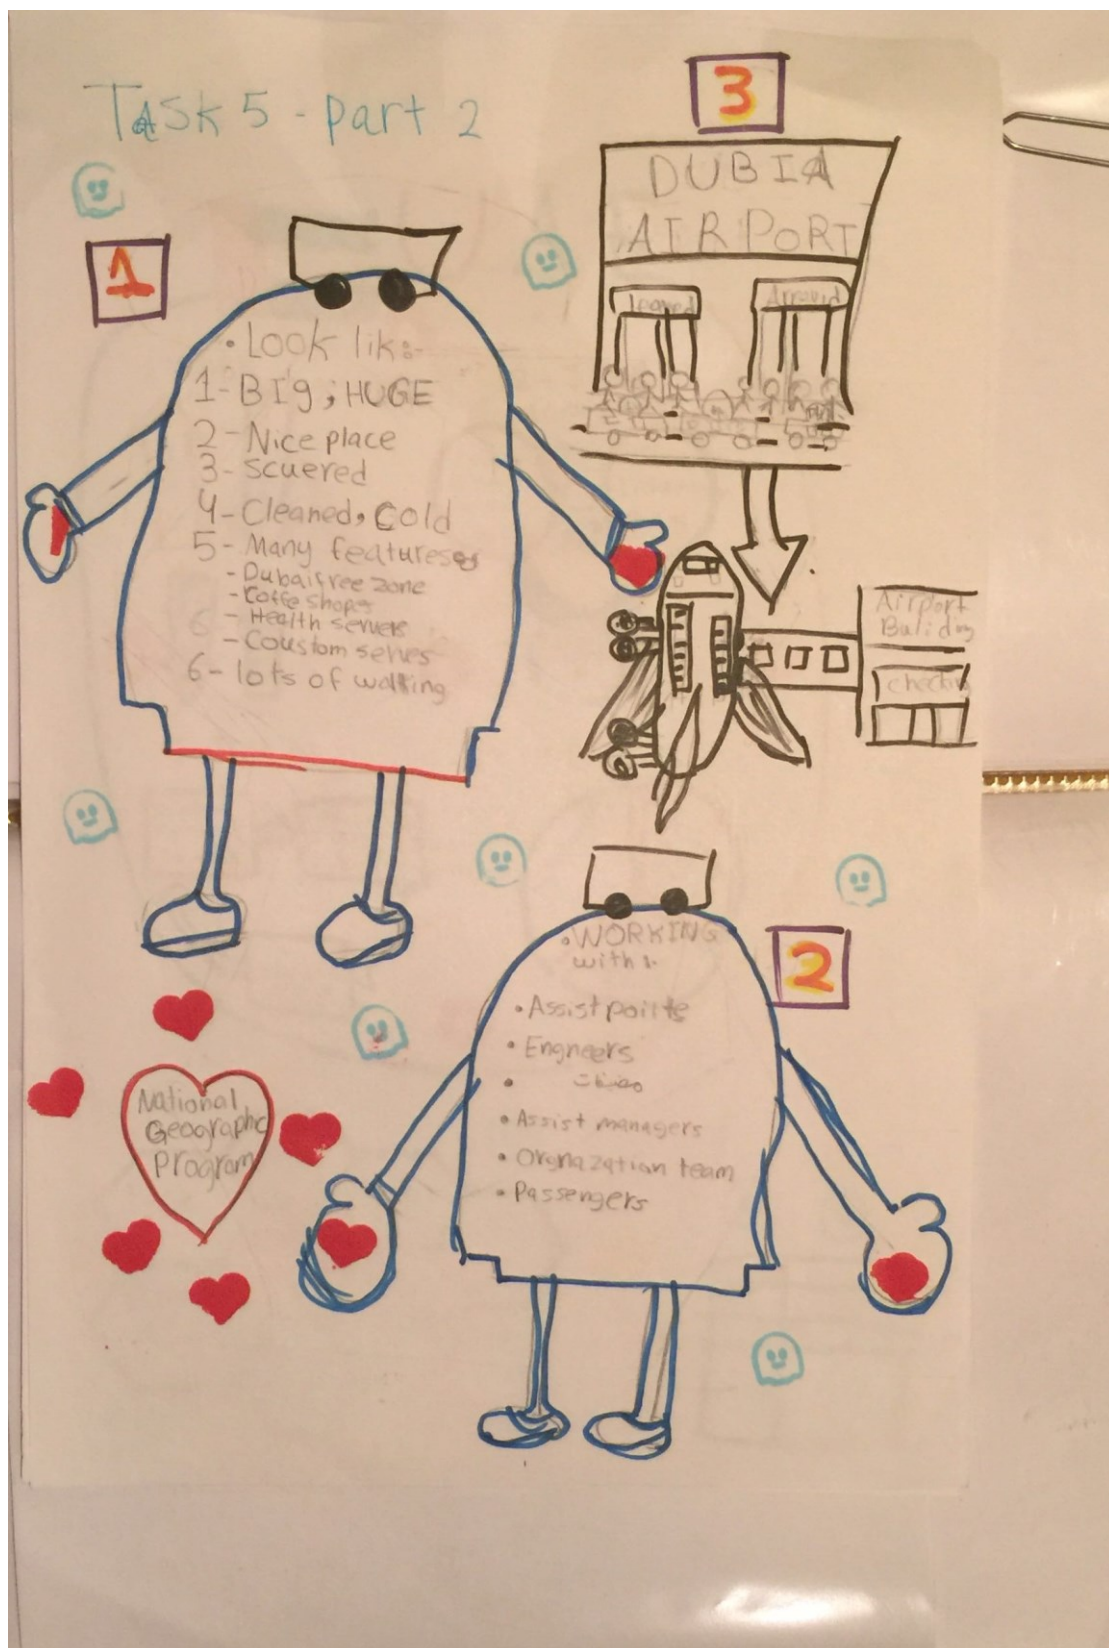 Task 5 - part 2
1
• Look lik:-
1- BIg ; HUGE
2 - Nice place
3 - scuered
4 - Cleaned, Cold
5 - Many features
- Dubai free zone
- Coffe shops
- Health servers
- Coustom serves
6 - lots of walking
3
DUBIA
AIRPORT
Airport
Buliding
checkin
2
• WORKING
with :-
• Assist
• Engneers
• Assist managers
• Orgnazation team
• Passengers
National
Geographic
Program